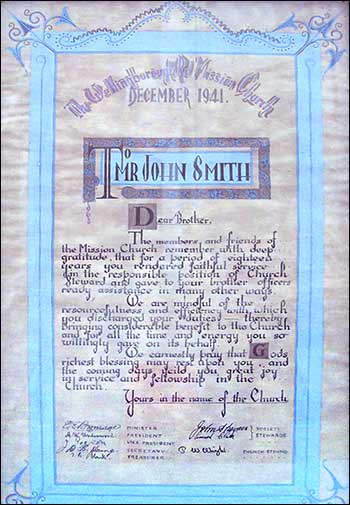 The Wellingborough Rd Mission Church
DECEMBER 1941.
To
MR JOHN SMITH
Dear Brother,
The members and friends of
the Mission Church remember with deep
gratitude, that for a period of eighteen
years you rendered faithful service
in the responsible position of Church
Steward and gave to your brother officers
ready assistance in many other ways.
We are mindful of the
resourcefulness, and efficiency with which
you discharged your duties thereby
bringing considerable benefit to the Church
and for all the time and energy you so
willingly gave on its behalf.
We earnestly pray that Gods
richest blessing may rest on you, and
the coming days yeild you great joy
in service and fellowship in the
Church.
Yours in the name of the Church
MINISTER
PRESIDENT
VICE PRESIDENT
SECRETARY
TREASURER
SOCIETY
STEWARDS
C W Wright CHURCH STEWARD